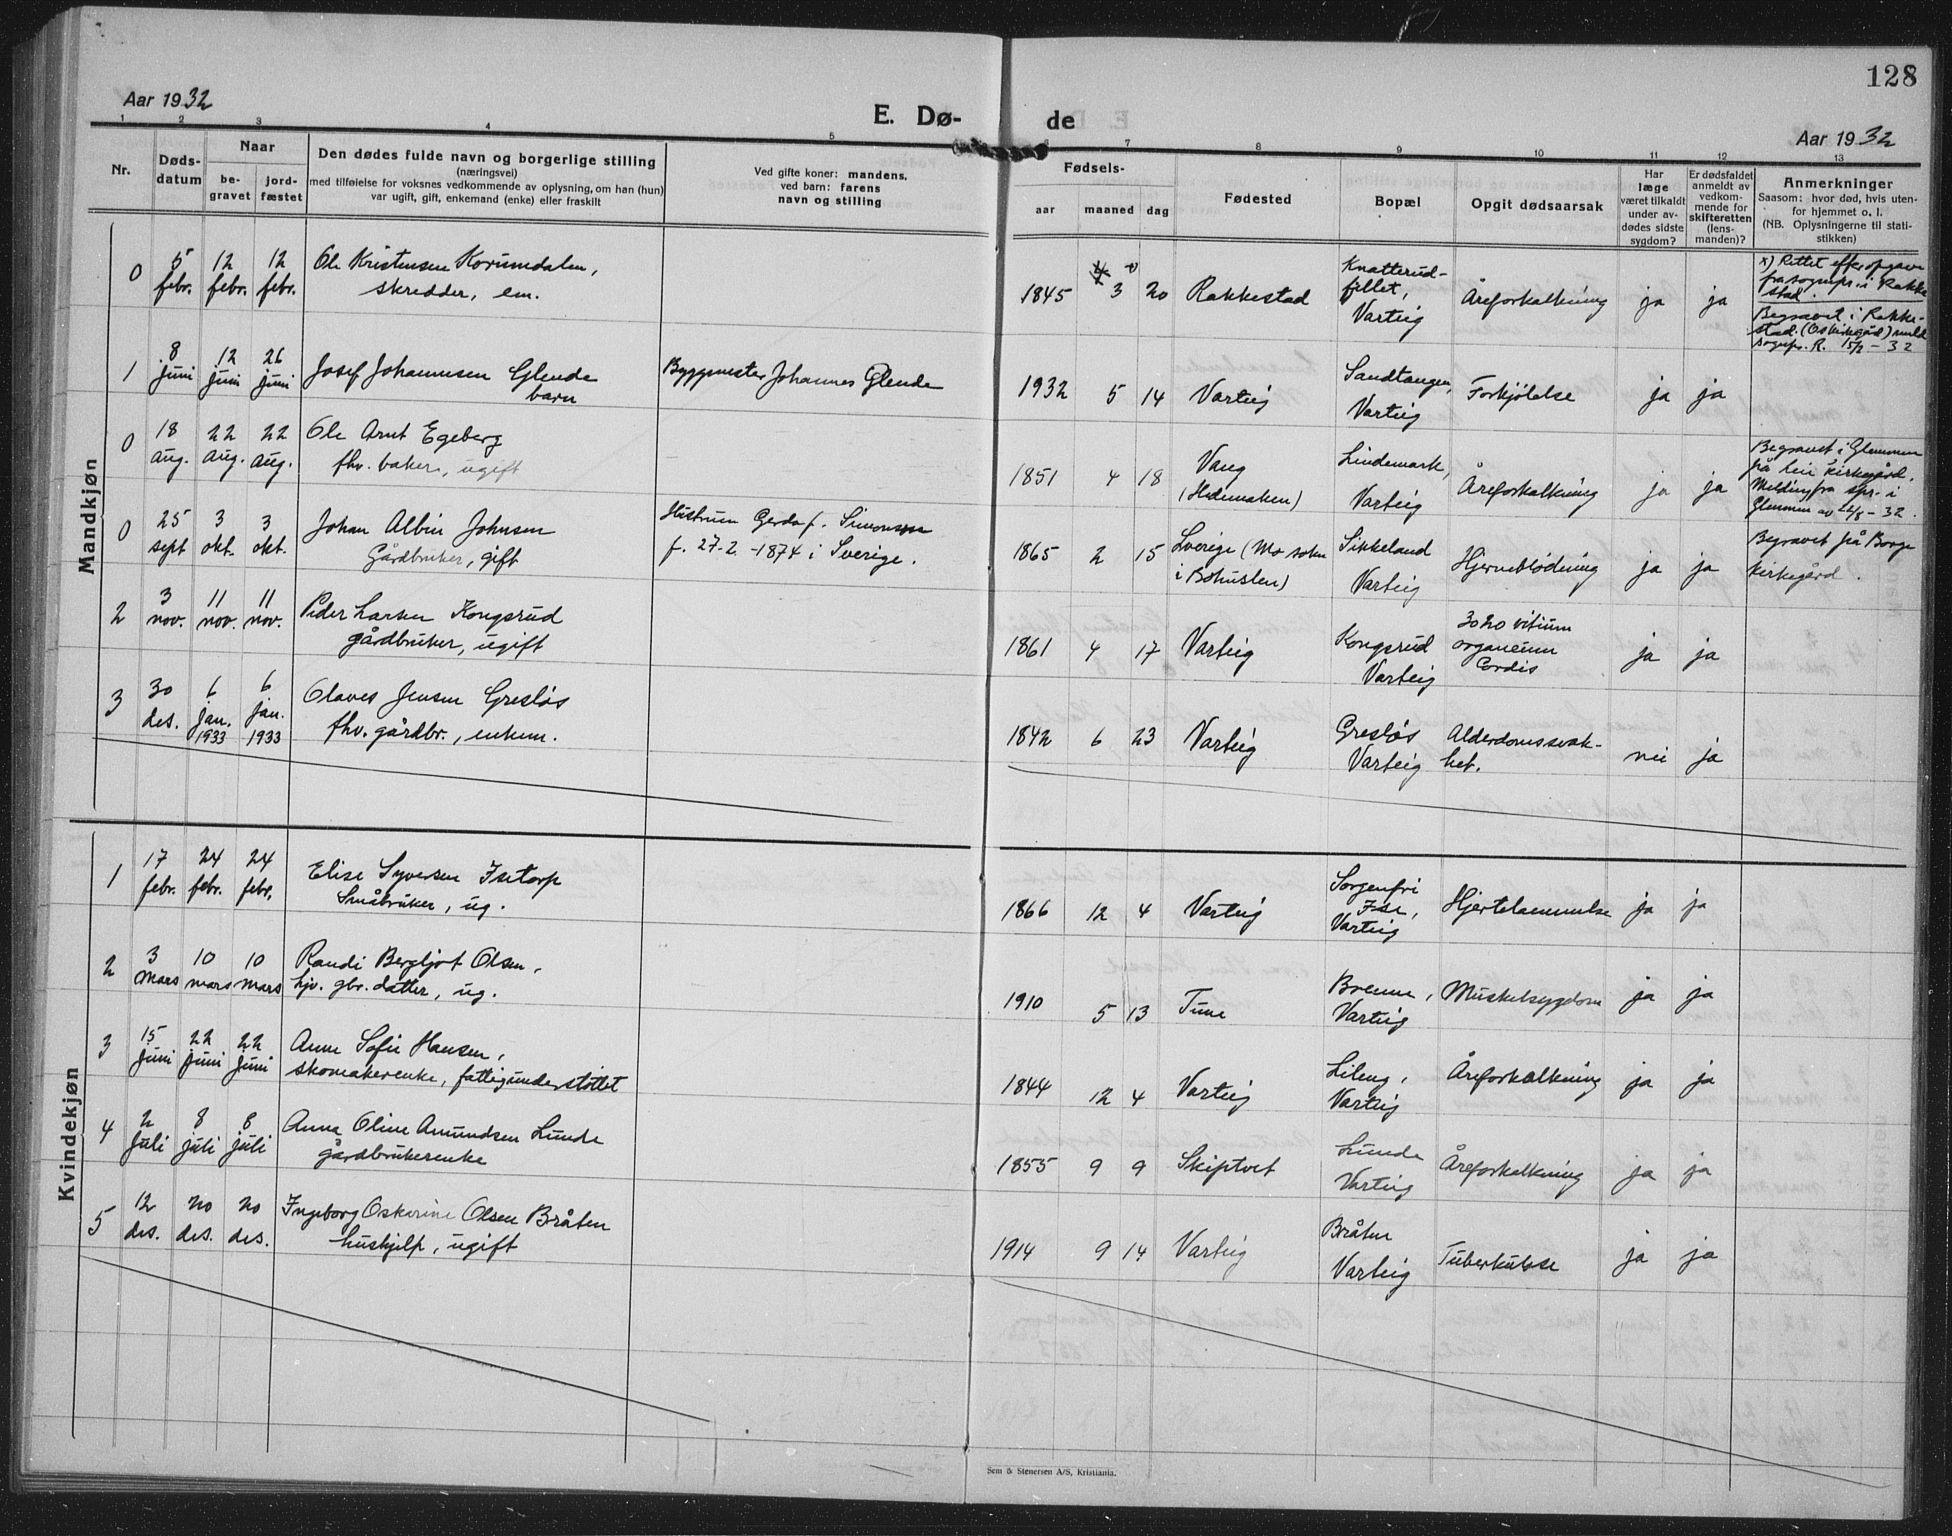 128
Aar 1932
E. Dø- de
Aar 1932
1 2 3 4 5 6 7 8 9 10 11 12 13
Nr.
Døds-
datum
Naar
be-
gravet
jord-
fæstet
Den dødes fulde navn og borgerlige stilling
(næringsvei)
med tilføielse for voksnes vedkommende av oplysning, om han (hun)
var ugift, gift, enkemand (enke) eller fraskilt
Ved gifte koner: mandens,
ved barn: farens
navn og stilling
Fødsels-
aar maaned dag
Fødested
Bopæl
Opgit dødsaarsak
Har
læge
været tilkaldt
under av-
dødes sidste
sygdom?
Er dødsfaldet
anmeldt av
vedkom-
mende for
skifteretten
(lens-
manden)?
Anmerkninger
Saasom: hvor død, hvis uten-
for hjemmet o. l.
(NB. Oplysningerne til stati-
stikken)
Mandkjøn
0 5 febr. 12 febr. 12 febr. Ole Kristensen Korumdalen,
skredder, em.
1845 3 20 Rakkestad
Knatterud-
fjellet,
Varteig
Åreforkalkning ja ja
x) Rettet efter opgave
fra sognepr. i Rakke
stad.
Begravet i Rakke-
stad. (Os kirkegård) meld.
sognepr. R. 15/2 - 32
1 8 juni 12 juni 26 juni Josef Johannesen Glende
barn
Byggmester Johannes Glende
1932 5 14 Varteig
Sandtangen,
Varteig
Forkjølelse ja ja
0 18 aug. 22 aug. 22 aug. Ole Arnt Egeberg
fhv. baker, ugift
1851 4 18 Vang
(Hedemarken)
Lindemark,
Varteig
Åreforkalkning ja ja
Begravet i Glemmen
på Leie kirkegård.
Melding fra spr. i
Glemmen av 22/8 - 32.
0 25 sept 3 okt. 3 okt. Johan Albin Johnsen
Gårdbruker, gift
Hustrum Gerda f. Simonsen
f. 27-2-1874 i Sverige.
1865 2 15 Sverige (Mo sokn
i Bohuslen)
Sikkeland
Varteig
Hjerneblødning ja ja
Begravet på Borge
kirkegård.
2 3 nov. 11 nov. 11 nov. Peder Larsen Kongsrud
gårdbruker, ugift
1861 4 17 Varteig
Kongsrud
Varteig
3020 vitium
organicum
Cordis
ja ja
3 30 des. 6 jan. 1933 6 jan. 1933 Olaves Jensen Gresløs
fhv. gårdbr., enkem.
1842 6 23 Varteig
Gresløs
Varteig
Alderdomssvak-
het.
nei ja
Kvindekjøn
1 17 febr. 24 febr. 24 febr. Elise Syversen Isetorp
Småbruker, ug.
1866 12 4 Varteig
Sorgenfri
Ise,
Varteig
Hjertelammelse ja ja
2 3 mars 10 mars 10 mars Randi Bergljot Olsen,
hjv. gbr. datter, ug.
1910 5 13 Tune
Brenne,
Varteig
Muskelsygdom ja ja
3 15 juni 22 juni 22 juni Anne Sofie Hansen,
skomakerenke, fattigunderstøttet
1844 12 4 Varteig
Lileng,
Varteig
Åreforkalkning ja ja
4 2 juli 8 juli 8 juli Anna Oline Amundsen Lunde
gårdbrukerenke
1855 9 9 Skiptvet
Lunde
Varteig
Åreforkalkning ja ja
5 12 des. 20 des. 20 des. Ingeborg Oskarine Olsen Bråten
hushjelp, ugift
1914 9 14 Varteig
Bråten
Varteig
Tuberkulose ja ja
Sem & Stenersen A/S, Kristiania.